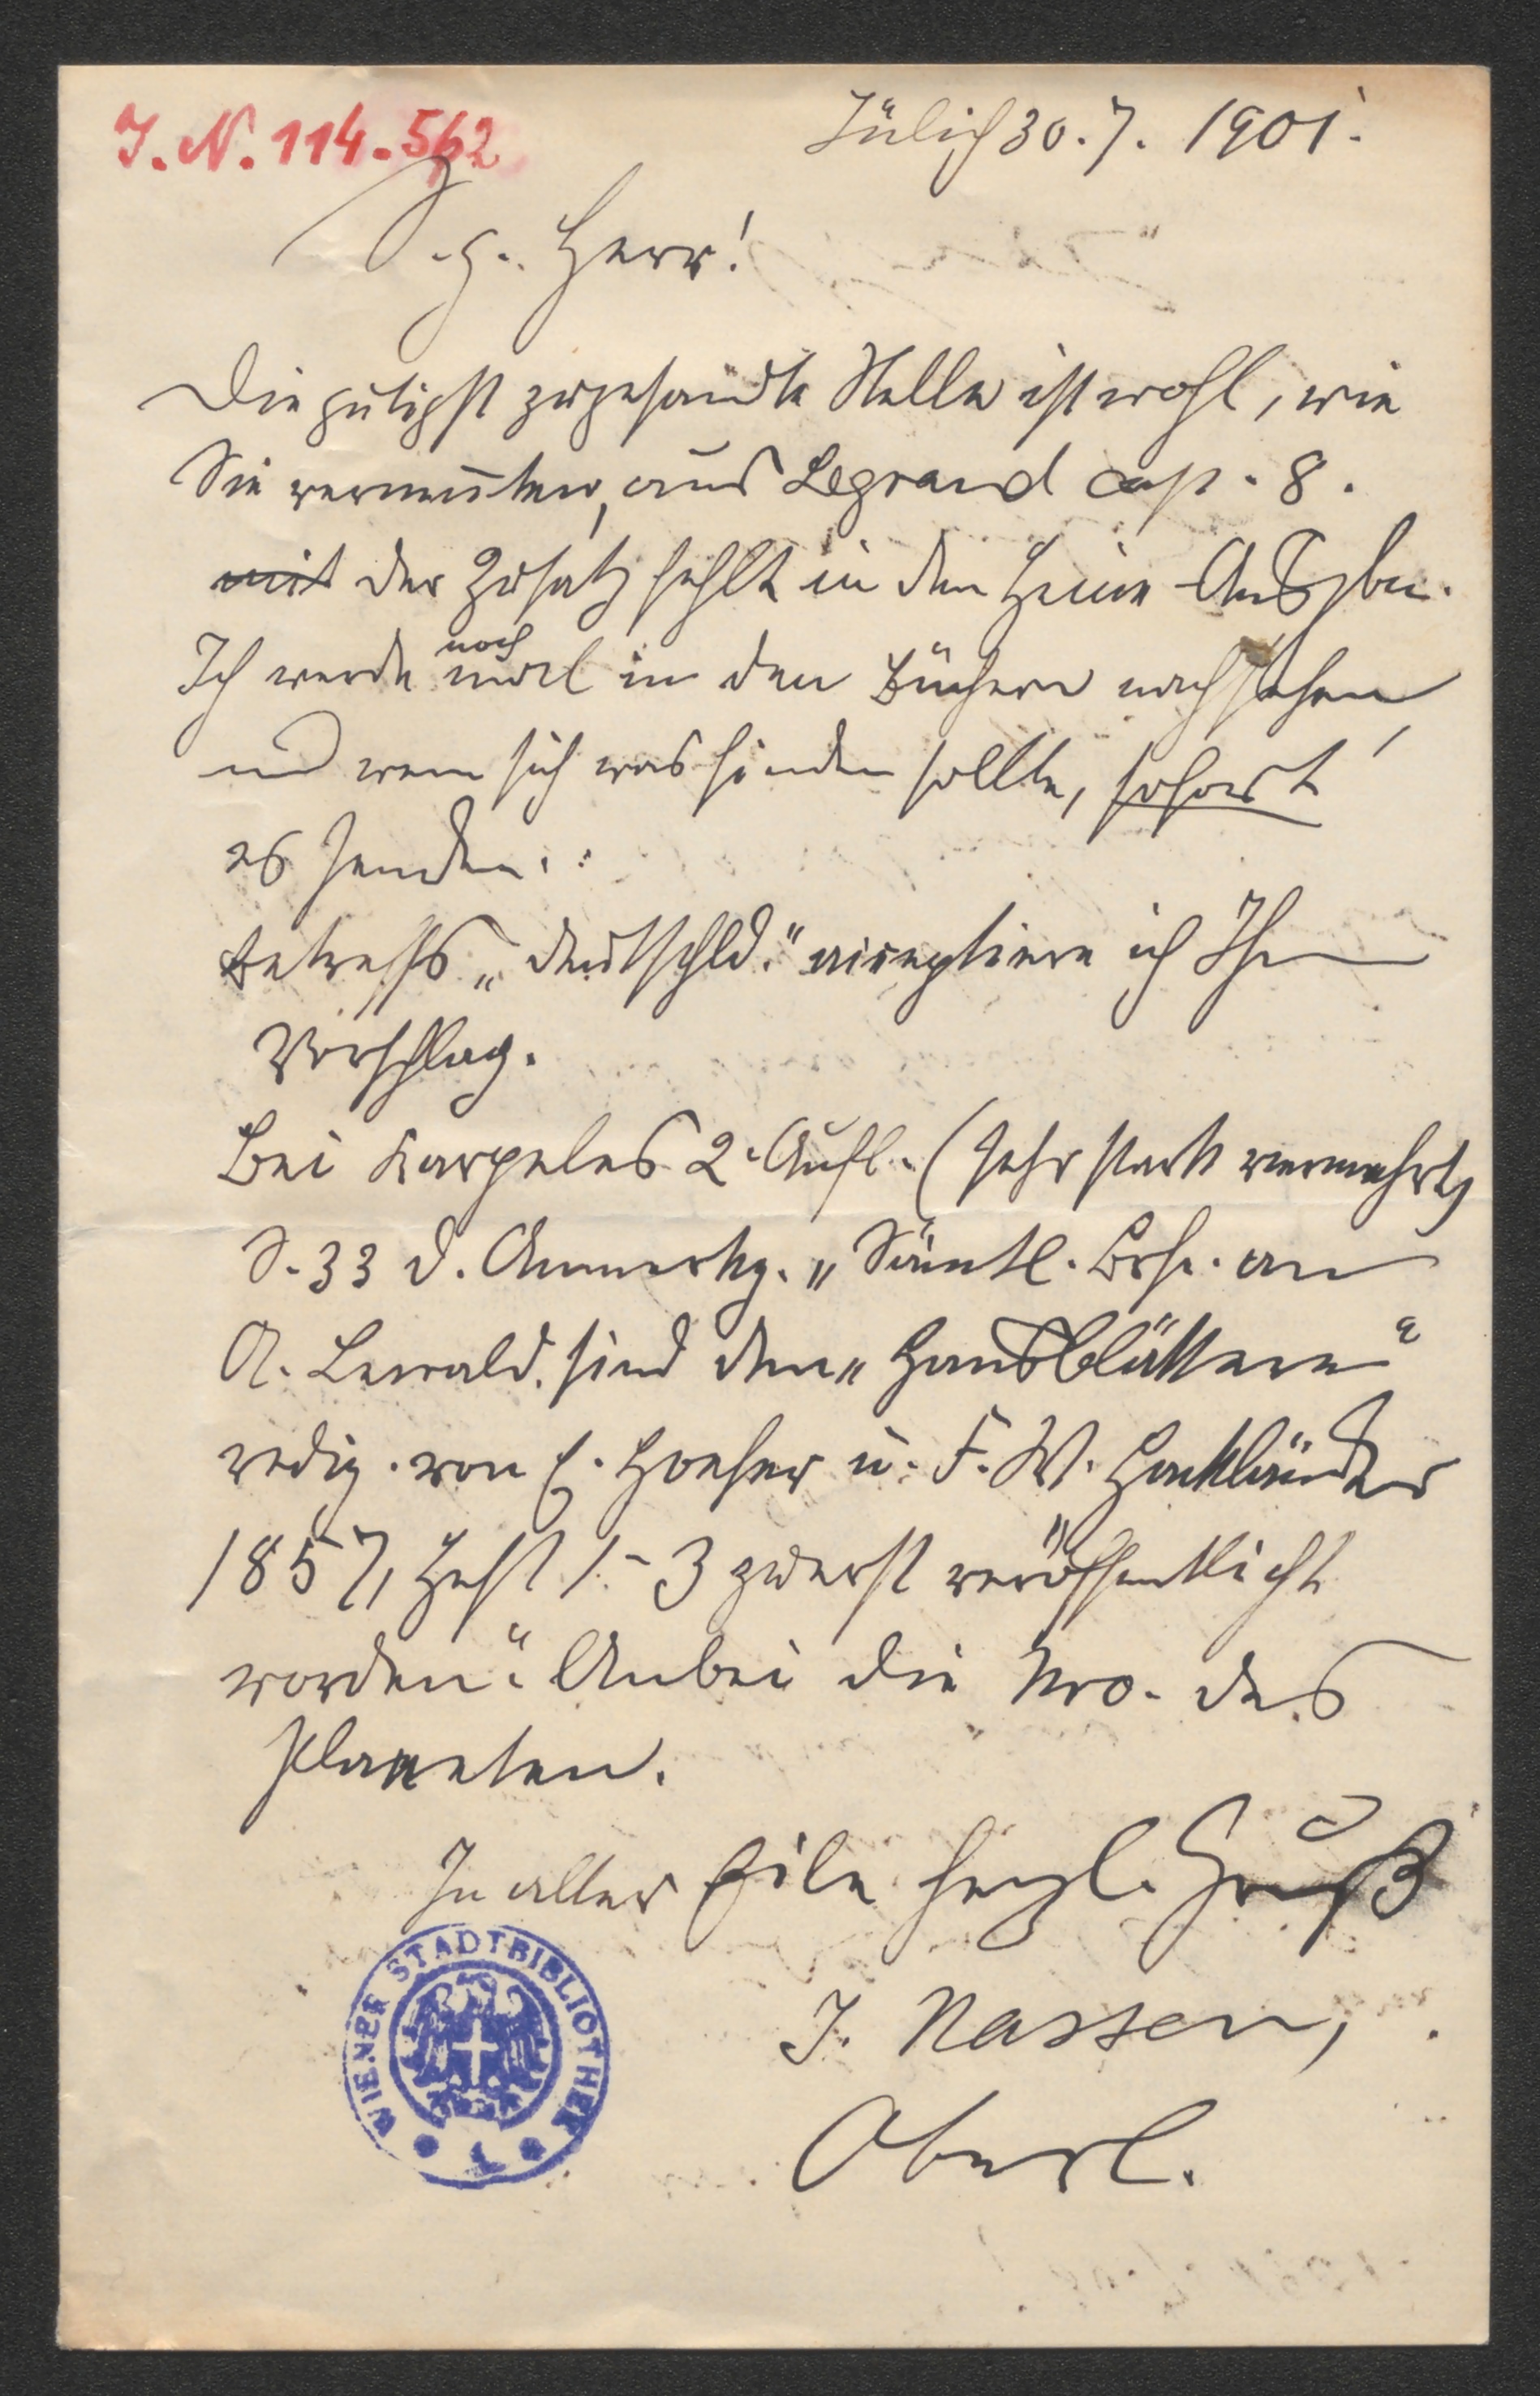 I. N. 114.562
Jülich 30.7. 1901.
S. g. Herr!
Die gütigst zugesandte Stelle ist wohl, wie
Sie vermuten, aus Legrand cap. 8.
mit der Zusatz fehlt in den Heine-Ausgbn.
Ich werde noch mal in den Büchern nachsehen
und wenn sich was finden sollte, sofort
es senden.
Betreffs „Deutschld." acceptiere ich Ihren
Vorschlag.
Bei Karpeles 2. Aufl. (sehr stark vermehrt)
S. 33 d. Anmerkg. „Sämtl. Brfe. an
A. Lewald sind den „Hausblättern"
redig. von E. Hoefer u. F. W. Hackländer
1857, Heft 1-3 zuerst veröffentlicht
worden". Anbei die Nro. des
Planeten.
In aller Eile herzl. Gruß
J. Nassen,
Oberl.
WIENER STADTBIBLIOTHEK